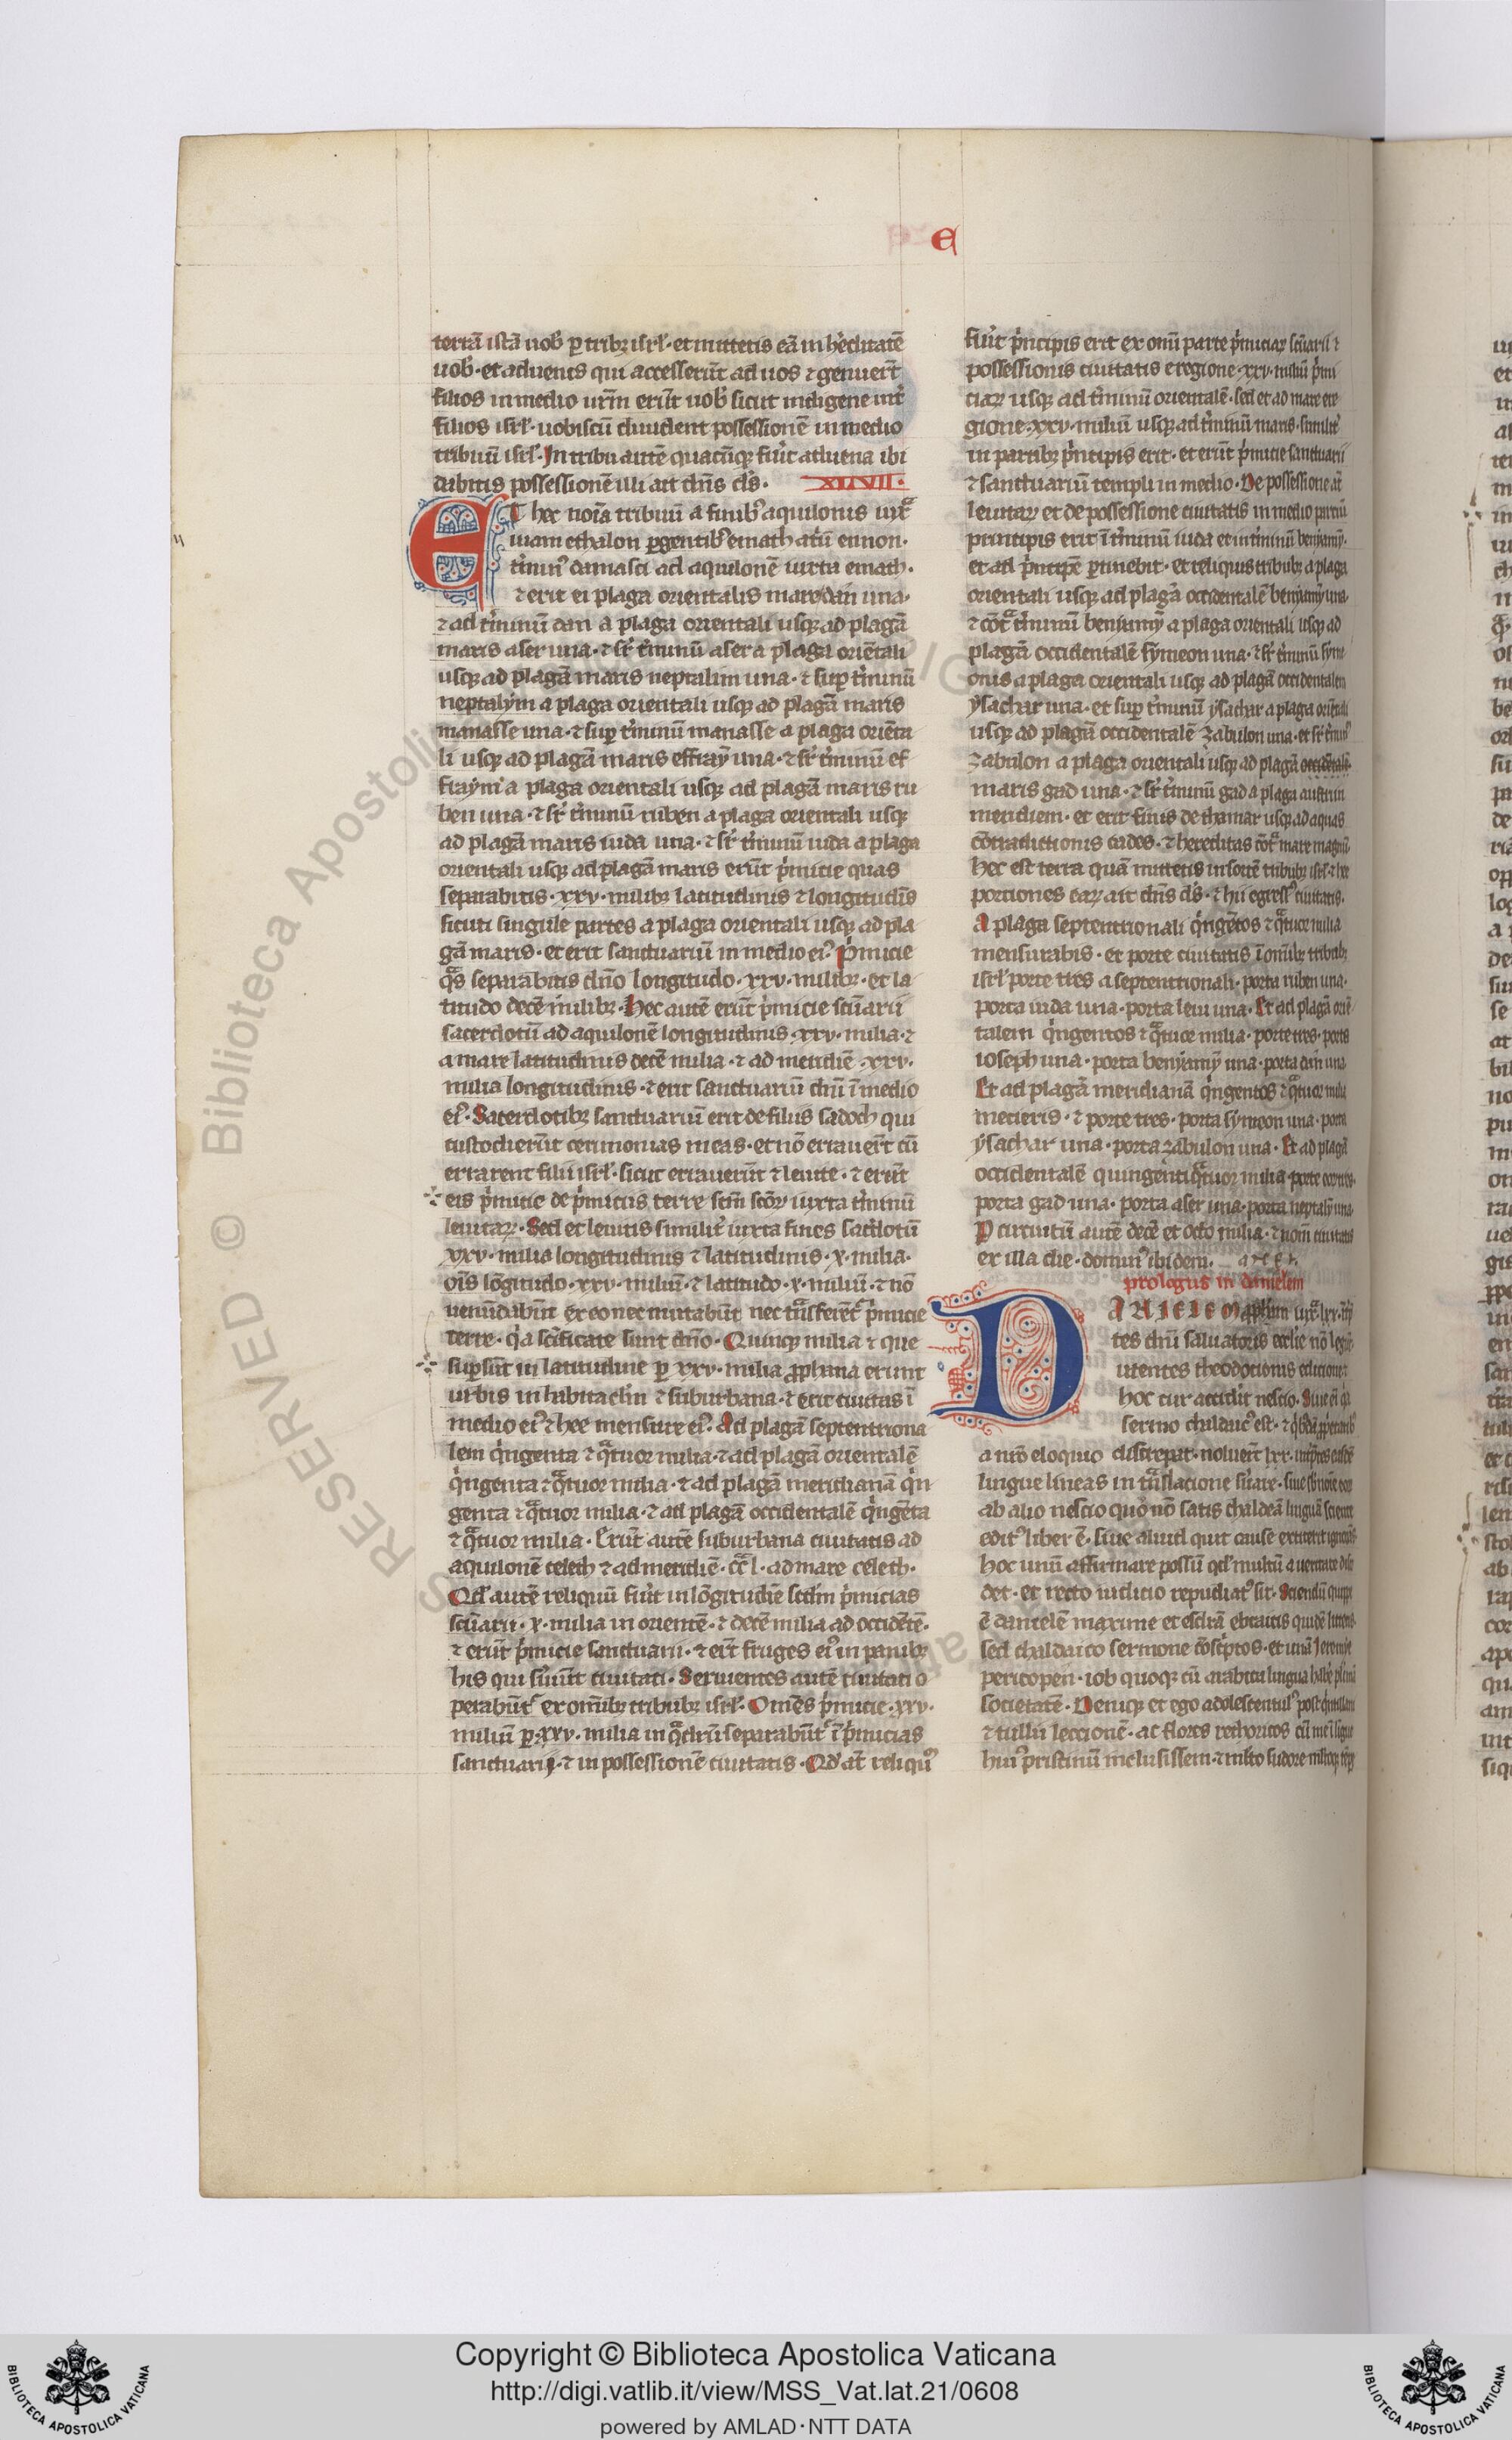 E
terrã istã uob̾ ꝑ tribꝫ isrł· et mittetis eã in h̾editatẽ
uob̾· et aduenis qui accesserũt ad uos ⁊ genuer̃t
filios in medio ur̃m erũt uob̾ sicut indigene int̾
filios isrł· uobiscũ diuident possessionẽ in medio
tribuũ isrł· In tribu autẽ quacũqꝫ fu̾it aduena ibi
dabitis possessionẽ illi ait dñs d̾s· XLVII·
ET hec noĩa tribuũ a finibꝰ aquilonis iuxᷓ
uiam ethalon ꝑgentibꝰ emath atriũ ennon·
t̾minꝰ damasci ad aquilonẽ iuxta emath·
⁊ erit ei plaga orientalis mare dan una·
⁊ ad t̾minũ dan a plaga orientali usqꝫ ad plagã
maris aser una· ⁊ sr̾ t̾minũ aser a plaga oriẽtali
usqꝫ ad plagã maris neptalim una· ⁊ sup̱ t̾minũ
neptalym a plaga orientali usqꝫ ad plagã maris
manasse una· ⁊ sup̱ t̾minũ manasse a plaga oriẽta
li usqꝫ ad plagã maris effraym̃ una· ⁊ sr̾ t̾minũ ef
fraym̃ a plaga orientali usqꝫ ad plagã maris ru
ben una· ⁊ sr̾ t̾minũ ruben a plaga orientali usqꝫ
ad plagã maris iuda una· ⁊ sr̾ t̾minũ iuda a plaga
orientali usqꝫ ad plagã maris erũt p̾micie quas
separabitis· xxv· milibꝫ latitudinis ⁊ longitudĩs
sicuti singule partes a plaga orientali usqꝫ ad pla
gã maris· et erit sanctuariũ in medio eiꝰ· P̾micie
qᷓs separabitis dño longitudo· xxv· milibꝫ· et la
titudo decẽ milibꝫ· Hec autẽ erũt p̾micie scũarii
sacerdotũ ad aquilonẽ longitudinis xxv· milia· ⁊
a mare latitudinis decẽ milia· ⁊ ad meridiẽ xxv·
milia longitudinis· ⁊ erit sanctuariũ dñi ĩ medio
eiꝰ· Sacerdotibꝫ sanctuariũ erit de filiis sadoch qui
custodierũt cerimonias meas· et nõ errauer̃t cũ
errarent filii isrł· sicut errauerũt ⁊ leuite· ⁊ erũt
eis p̾micie de p̾miciis terre scm̃ scõꝝ iuxta t̾minũ
leuitaꝝ· Sed et leuitis similit̾ iuxta fines sacdotũ
xxv· milia longitudinis ⁊ latitudinis· x· milia·
oĩs lõgitudo· xxv· miliũ· ⁊ latitudo· x· miliũ· ⁊ nõ
uenũdabũt ex eo nec mutabũt nec tᷓsferẽt̾ p̾micie
terre· q̾a sc̃ificate sunt dño· Quinqꝫ milia ⁊ que
sup̱sũt in latitudine ꝑ xxv· milia ꝓphana erunt
urbis in habitaclm̃ ⁊ suburbana· ⁊ erit ciuitas ĩ
medio eiꝰ ⁊ hee mensure eiꝰ· Ad plagã septentriona
lem q̾ngenta ⁊ qᷓtuor milia· ⁊ ad plagã orientalẽ
q̾ngenta ⁊ qᷓtuor milia· ⁊ ad plagã meridianã q̾n
genta ⁊ qᷓtuor milia· ⁊ ad plagã occidentalẽ q̾ngẽta
⁊ qᷓtuor milia· Erũt autẽ suburbana ciuitatis ad
aquilonẽ celeth ⁊ ad meridiẽ· ccᷓ l· ad mare celeth·
Qd̾ autẽ reliquũ fu̾it in lõgitudiẽ scdm̃ p̾micias
scũarii· x· milia in orientẽ· ⁊ decẽ milia ad occidẽtẽ·
⁊ erũt p̾micie sanctuarii· ⁊ er̃t fruges eiꝰ in panibꝫ
his qui su̾iũt ciuitati· Seruientes autẽ ciuitati o
perabũt̾ ex omĩbꝫ tribubꝫ isrł· Omẽs p̾micie· xxv·
miliũ ꝑ xxv· milia in qᷓdrũ separabũt̾ ĩ p̾micias
sanctuarij· ⁊ in possessionẽ ciuitatis· Qd̾ aũt reliquꝰ
fu̾it p̾ncipis erit ex omĩ parte p̾miciaꝝ scũarii ⁊
possessionis ciuitatis e regione· xxv· miliũ p̾mi
ciaꝝ usqꝫ ad t̾minũ orientalẽ· sed et ad mare e re
gione· xxv· miliũ usqꝫ ad t̾minũ maris· similit̾
in partibꝫ p̾ncipis erit· et erũt p̾micie sanctuarii
⁊ sanctuariũ templi in medio· De possessione aũt
leuitaꝝ et de possessione ciuitatis in medio partiũ
principis erit ĩ t̾minũ iuda et in t̾minũ benyamỹ·
et ad p̾ncipẽ ꝑtinebit· et reliquis tribubꝫ a plaga
orientali usqꝫ ad plagã occidentalẽ benyamỹ una·
⁊ cõtᷓ t̾minũ benyamỹ a plaga orientali usqꝫ ad
plagã occidentalẽ symeon una· ⁊ sr̾ t̾minũ syme
onis a plaga orientali usqꝫ ad plagã occidentalem
ysachar una· et sup̱ t̾minũ ysachar a plaga oriẽtali
usqꝫ ad plagã occidentalẽ zabulon una· et sr̾ t̾minũ
zabulon a plaga orientali usqꝫ ad plagã
maris gad una· ⁊ sr̾ t̾minũ gad a plaga austri in
meridiem· et erit finis de thamar usqꝫ ad aquas
cõtradictionis cades· ⁊ hereditas cõtᷓ mare magnũ
hec est terra quã mittetis in sortẽ tribubꝫ isrł· ⁊ hee
portiones eaꝝ ait dñs d̾s· ⁊ hii egressꝰ ciuitatis·
A plaga septentrionali q̾ngẽtos ⁊ qᷓtuor milia
mensurabis· et porte ciuitatis ĩ omĩbꝫ tribubꝫ
isrł porte tres a septentrionali· porta ruben una·
porta iuda una· porta leui una· Et ad plagã oriẽ
talem q̾ngentos ⁊ qᷓtuor milia· porte tres· porta
ioseph una· porta benyamỹ una· porta dan una
Et ad plagã meridianã q̾ngentos ⁊ qᷓtuor milia
metieris· ⁊ porte tres· porta symeon una· porta
ysachar una· porta zabulon una· Et ad plagã
occidentalẽ quingenti qᷓtuor milia· porte
porta gad una· porta aser una· porta neptalỹ una
P circuitũ autẽ decẽ et octo milia· ⁊ nom̃ ciuitatis
ex illa die· dominꝰ ibidem·
prologus in danielem
DANIELEM ꝓphetam iuxᷓ lxx·
tes dñi saluatoris ecclie nõ legũt
utentes theodotionis editione·
hoc cur acciderit nescio· Siue
sermo chaldaicꝰ est· ⁊
a nr̃o eloquio discrepat· noluer̃t lxx·
lingue lineas in tᷓslacione
ab alio nescio quo nõ satis chaldeã linguã sciente
editꝰ liber ẽ· siue aliud quit cause
hoc unũ affirmare possũ qd̾ multũ a ueritate
det· et recto iudicio repudiatꝰ sit· Sciendũ quippe
ẽ danielẽ maxime et esdrã ebraicis quidẽ litteris
sed chaldaico sermone cõsc̾ptos· et unã Jeremie
pericopen· iob quoqꝫ cũ arabica lingua
societatẽ· Denique et ego adolescentulꝰ post
⁊ tullii leccionẽ· ac flores rethoricos
huiꝰ pristinũ inclusissem· ⁊ multo sudore
Copyright © Biblioteca Apostolica Vaticana
http://digi.vatlib.it/view/MSS_Vat.lat.21/0608
powered by AMLAD·NTT DATA
RESERVED © Biblioteca Apostolica
BIBLIOTECA APOSTOLICA VATICANA
BIBLIOTECA APOSTOLICA VATICANA